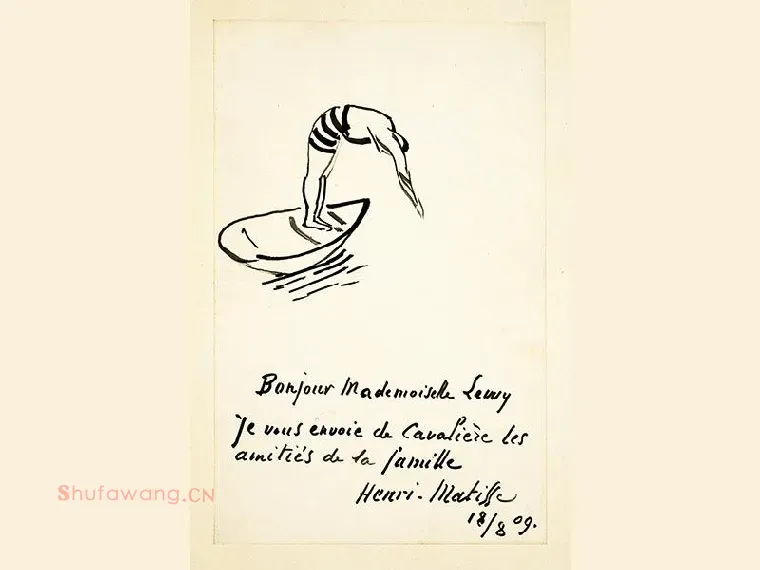 Bonjour Mademoiselle Levy
Je vous envoie de Cavalière les
amitiés de la famille
Henri-Matisse
18/8 09.
Shufawang.CN